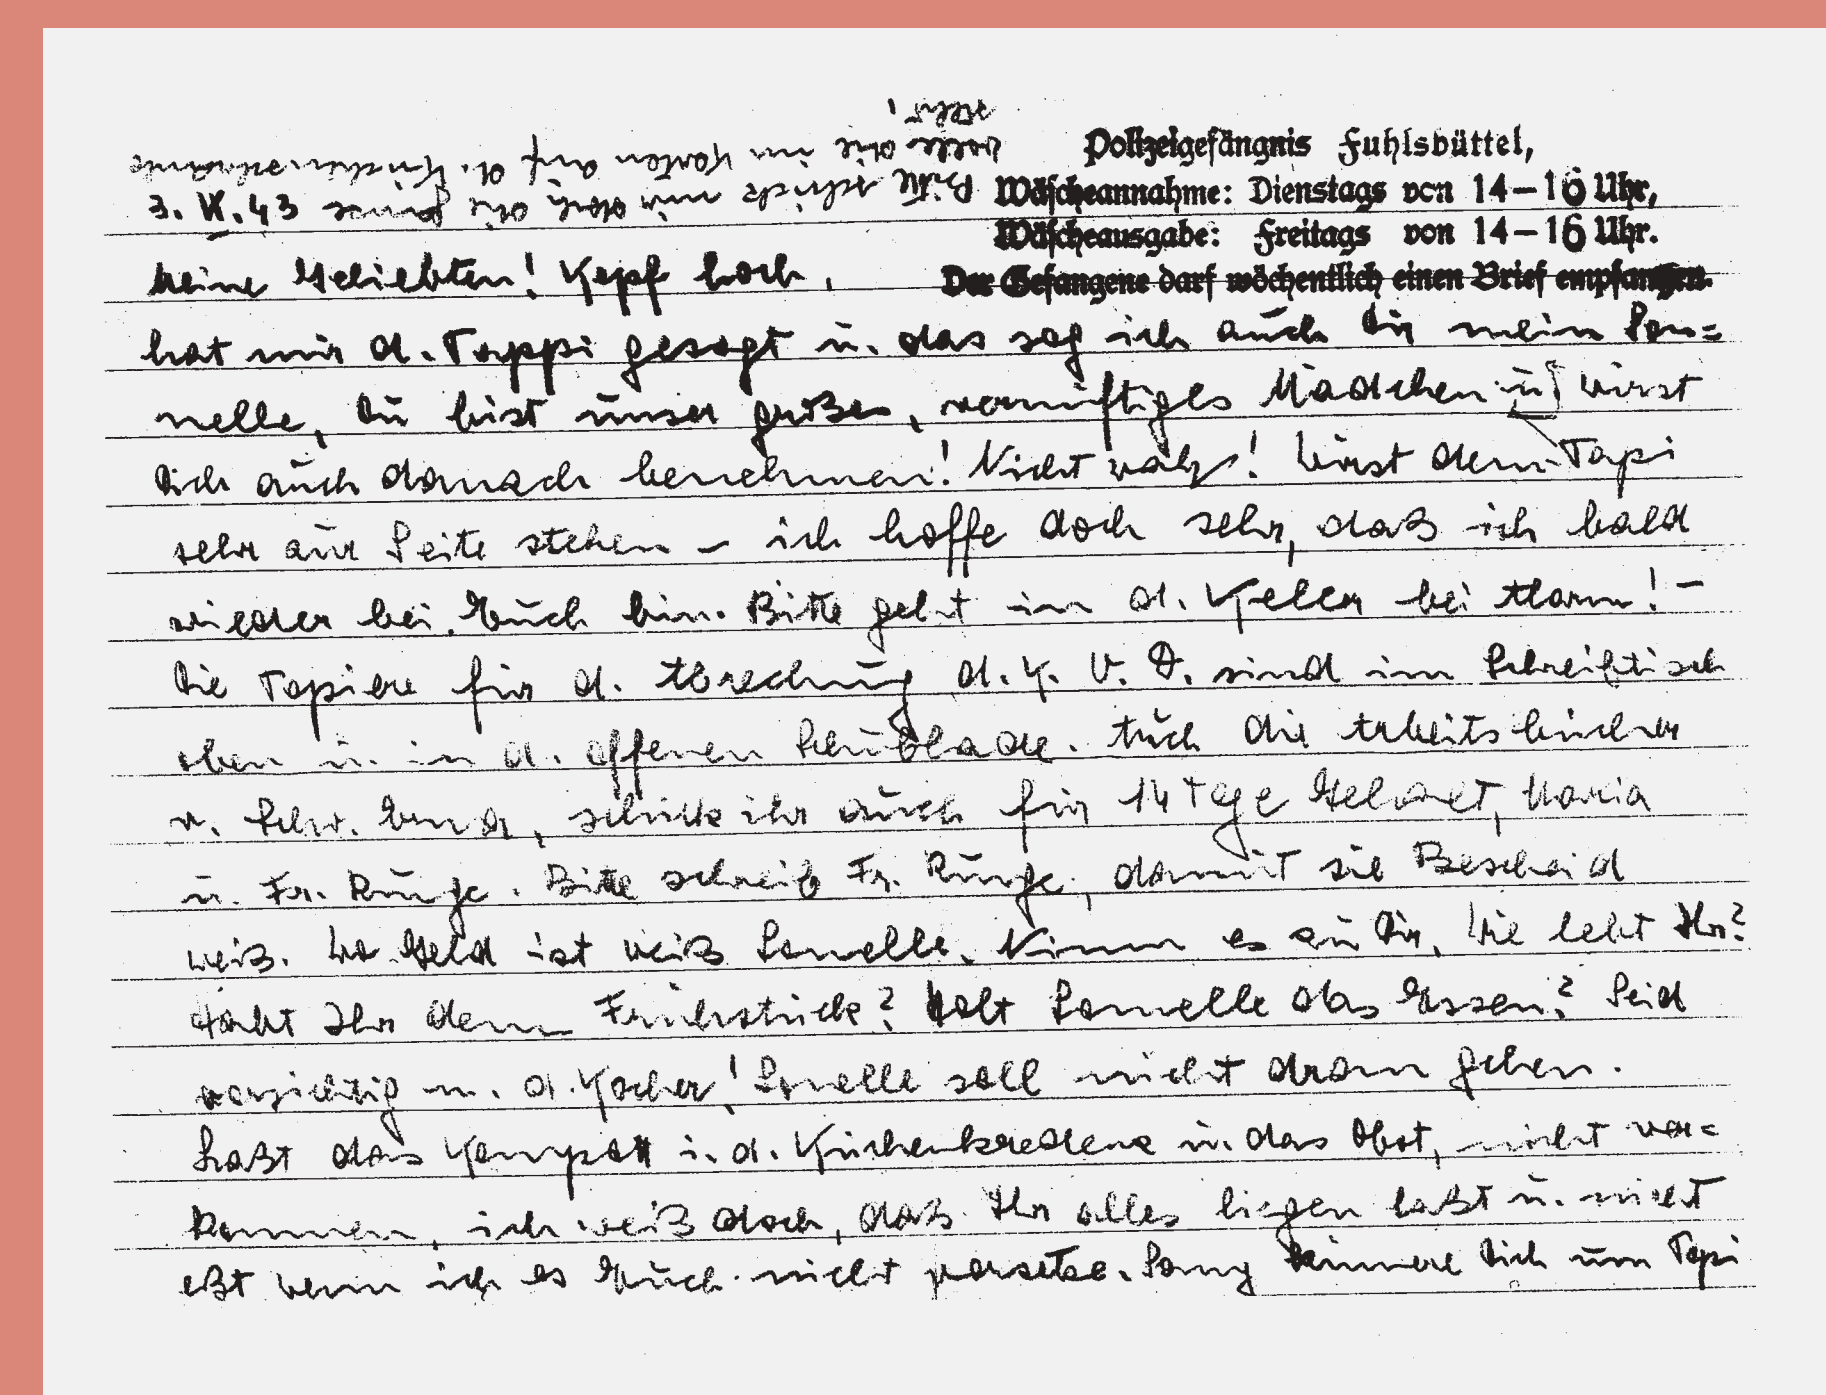 Polizeigefängnis Fuhlsbüttel,
Wäscheannahme: Dienstags von 14–16 Uhr,
Wäscheausgabe: Freitags von 14–16 Uhr.
Der Gefangene darf wöchentlich einen Brief empfangen.
Bitte schick mir doch die
rolle die im Karton auf d.
steht!
3. 43
Meine Geliebten! Kopf hoch,
hat mir d. Pappi gesagt u. das sag ich auch Dir mein Son=
nelle, Du bist unser großes, vernünftiges Mädchen u. wirst
Dich auch danach benehmen! Nicht wahr! Wirst dem Papi
sehr zur Seite stehen – ich hoffe doch sehr, daß ich bald
wieder bei Euch bin. Bitte geht in d. Keller bei Alarm! –
Die Papiere für d. Abrechnung d. K. V. D. sind im Schreibtisch
oben u. in d. offenen Schublade. Auch die Arbeitsbücher
v. Schw. schick ihr auch für 14 Tage Gehalt, Maria
u. Fr. Runge. Bitte schreib Fr. Runge, damit sie Bescheid
weiß. Wo Geld ist weiß Sonnelle. Nimm es zu Dir. Wie lebt Ihr?
Habt Ihr denn Frühstück? Holt Sonnelle das Essen? Seid
vorsichtig m. d. Kocher! Sonelle soll nicht dran gehen.
Laßt das Kompott i. d. Küchenkredenz u. das Obst, nicht ver=
kommen, ich weiß doch, daß Ihr alles liegen laßt u. nicht
eßt wenn ich es Euch nicht vorsetze. Sonny kümmere Dich um Papi